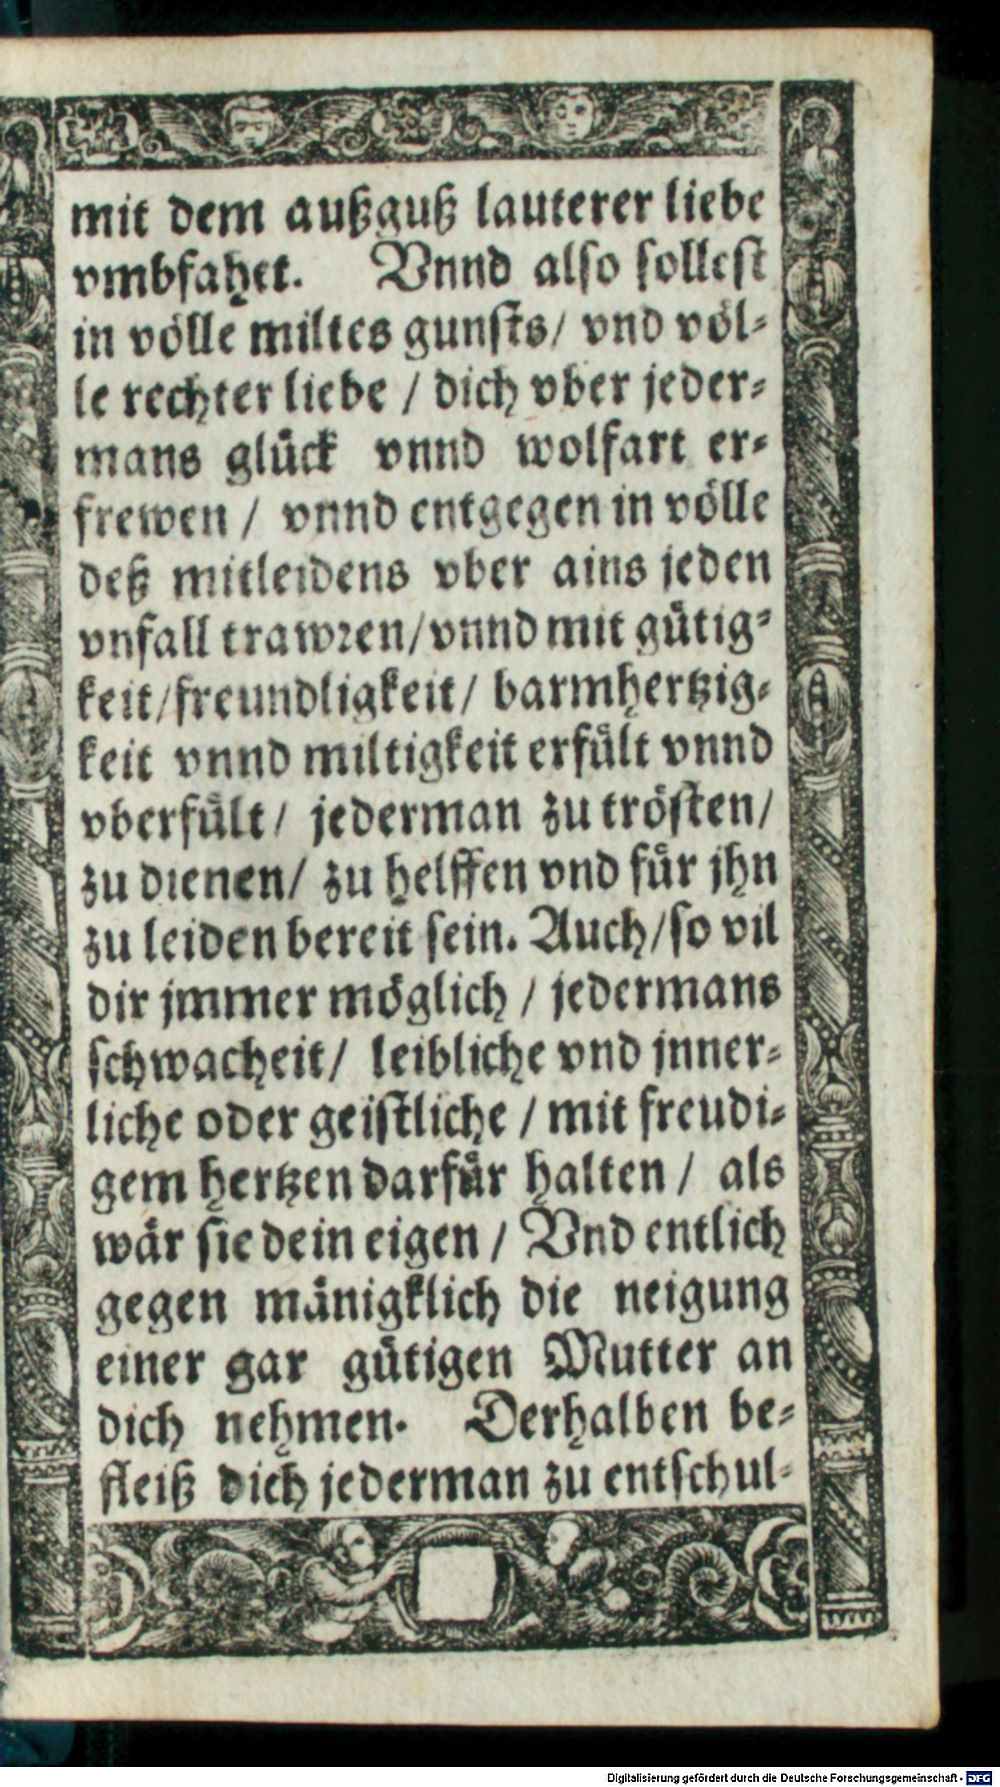 mit dem außguß lauterer liebe
vmbfahet. Vnnd also sollest
in völle miltes gunsts/ vnd völ-
le rechter liebe / dich vber jeder-
mans glück vnnd wolfart er-
frewen / vnnd entgegen in völle
deß mitleidens vber ains jeden
vnfall trawren/vnnd mit gütig-
keit/freundligkeit/ barmhertzig-
keit vnnd miltigkeit erfült vnnd
vberfült/ jederman zu trösten/
zu dienen/ zu helffen vnd für jhn
zu leiden bereit sein. Auch/so vil
dir jmmer möglich / jedermans
schwacheit/ leibliche vnd jnner-
liche oder geistliche / mit freudi-
gem hertzen darfür halten / als
wär sie dein eigen / Vnd entlich
gegen mänigklich die neigung
einer gar gütigen Mutter an
dich nehmen. Derhalben be-
fleiß dich jederman zu entschul-
Digitalisierung gefördert durch die Deutsche Forschungsgemeinschaft - DFG